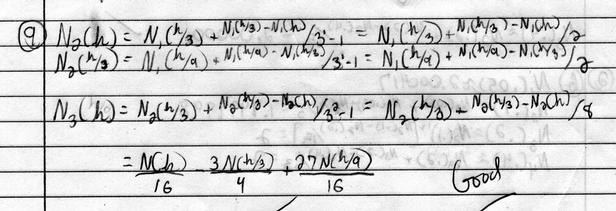 ⑨ N₂(h) = N₁(h/3) + N₁(h/3) - N₁(h)/3-1 = N₁(h/3) + N₁(h/3) - N₁(h)/2
N₂(h/3) = N₁(h/9) + N₁(h/9) - N₁(h/3)/3-1 = N₁(h/9) + N₁(h/9) - N₁(h/3)/2
N₃(h) = N₂(h/3) + N₂(h/3) - N₂(h)/3²-1 = N₂(h/3) + N₂(h/3) - N₂(h)/8
= N(h)/16 - 3N(h/3)/4 + 27N(h/9)/16 Good